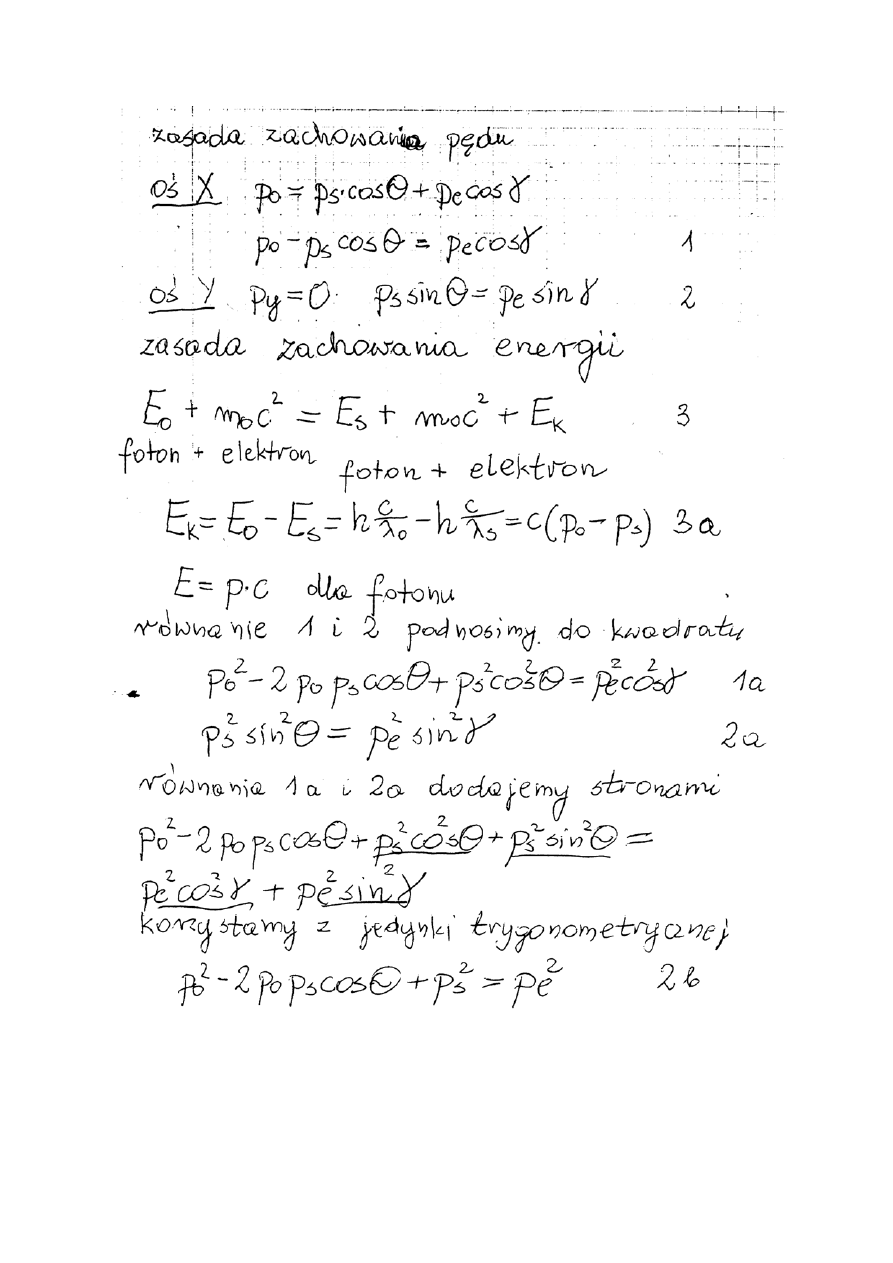 zasada zachowania pędu
oś X p₀ = pₛ·cosΘ + pₑcosɣ
p₀ - pₛcosΘ = pₑcosɣ 1
oś Y py = 0. pₛsinΘ = pₑ sinɣ 2
zasada zachowania energii
E₀ + m₀c² = Eₛ + m₀c² + Eₖ 3
foton + elektron foton + elektron
Eₖ = E₀ - Eₛ = h c/λ₀ - h c/λₛ = c(p₀ - pₛ) 3a
E = p·c dla fotonu
równanie 1 i 2 podnosimy do kwadratu
p₀² - 2 p₀ pₛcosΘ + pₛ²cos²Θ = pₑ²cos²ɣ 1a
pₛ² sin²Θ = pₑ² sin²ɣ 2a
równania 1a i 2a dodajemy stronami
p₀² - 2 p₀ pₛcosΘ + pₛ²cos²Θ + pₛ²sin²Θ =
pₑ²cos²ɣ + pₑ²sin²ɣ
korzystamy z jedynki trygonometrycznej
p₀² - 2 p₀ pₛcosΘ + pₛ² = pₑ² 2b